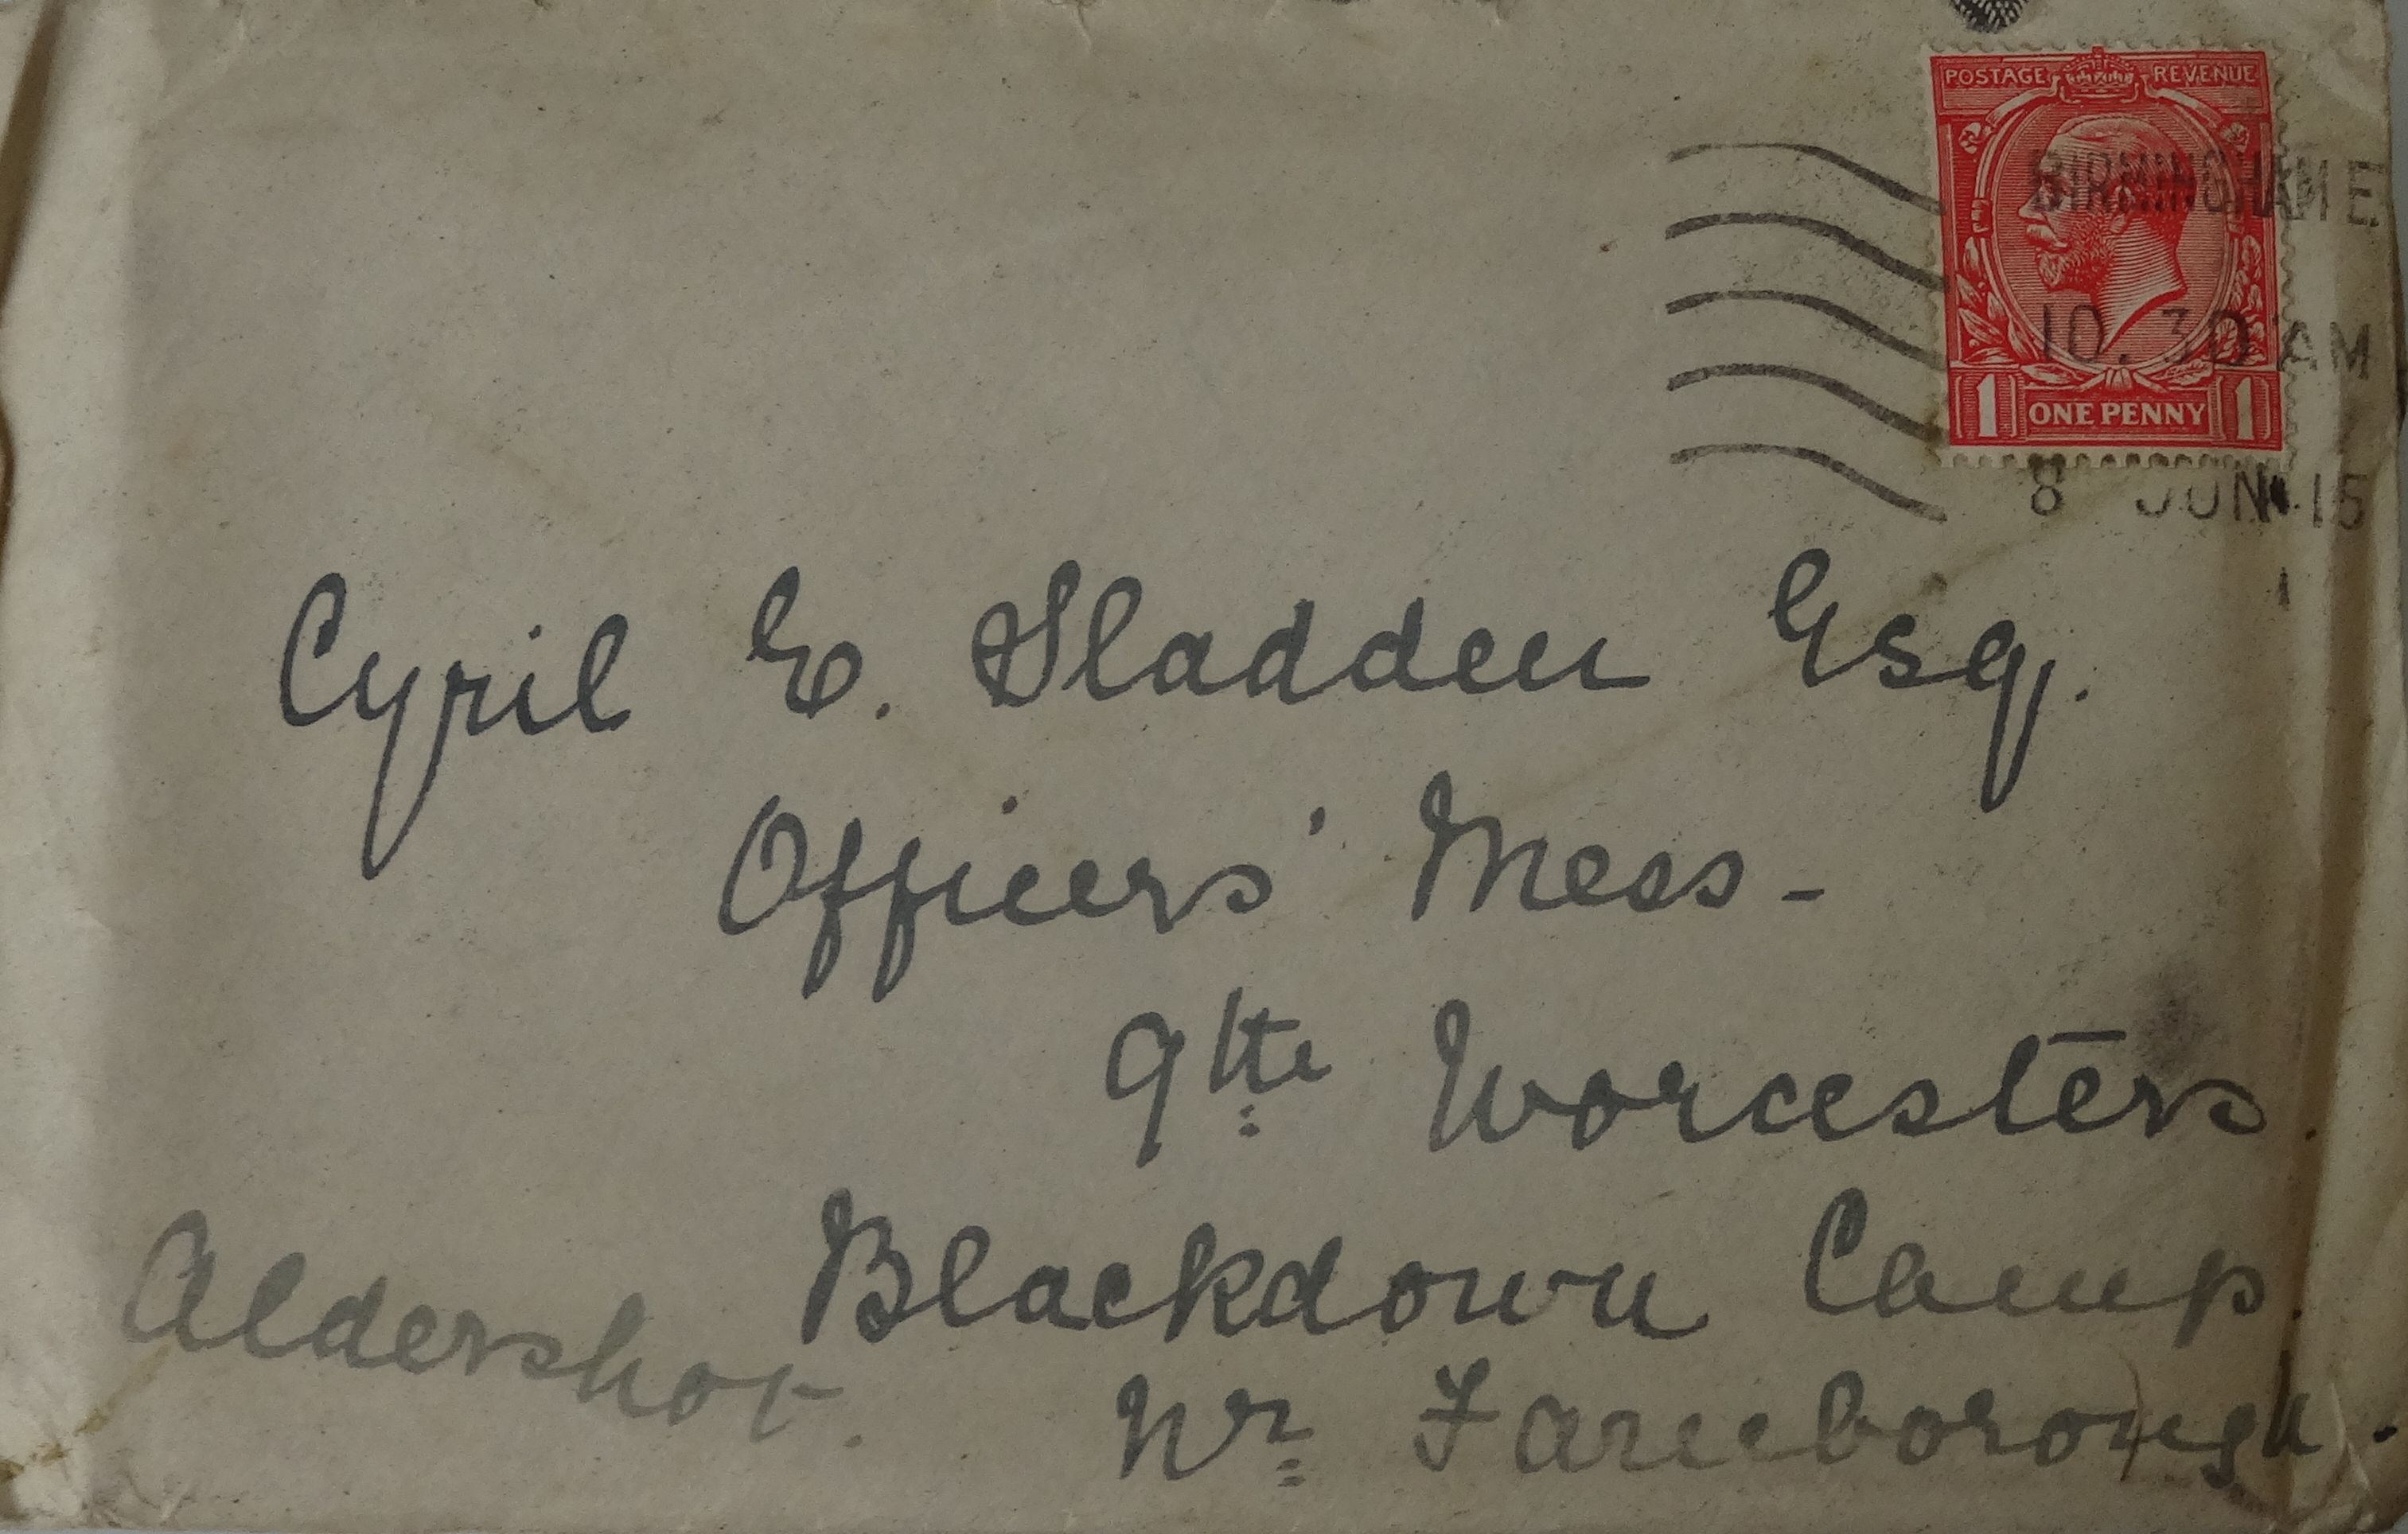 POSTAGE REVENUE
BIRMINGHAM E
10.30 AM
1 ONE PENNY 1
8 JUN 15
Cyril E. Sladden Esq.
Officers' Mess -
9th Worcesters.
Blackdown Camp.
Aldershot.
Nr Farnborough.